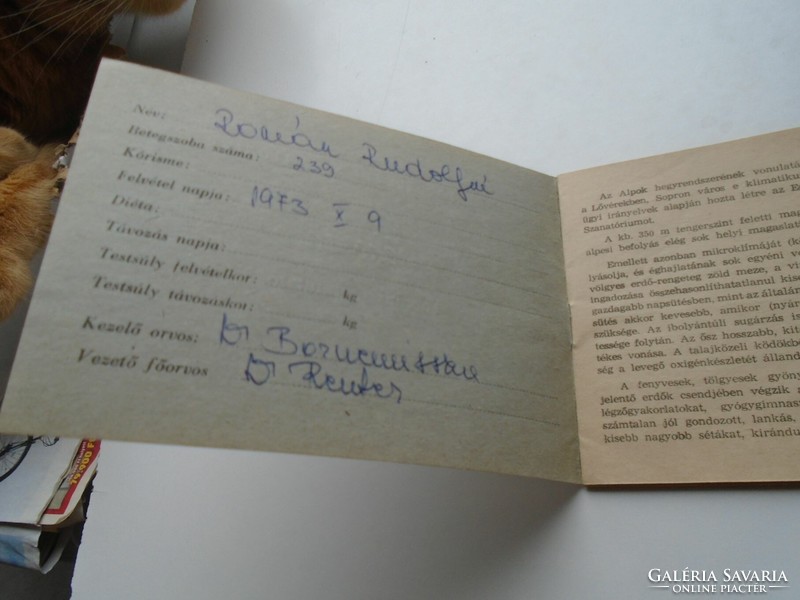 Név: Román Rudolfné
Betegszoba száma: 239
Kórisme:
Felvétel napja: 1973 X 9
Diéta:
Távozás napja:
Testsúly felvételkor: kg
Testsúly távozáskor: kg
Kezelő orvos: Dr Bornemissza
Vezető főorvos Dr Reuter
Az Alpok hegyrendszerének vonulatá
a Lővérekben, Sopron város e klimatikus
ügyi irányelvek alapján hozta létre az E
Szanatóriumot.
A kb. 350 m tengerszint feletti ma
alpesi befolyás elég sok helyi magaslat
Emellett azonban mikroklímáját (k
lyásolja, és éghajlatának sok egyéni v
völgyes erdő-rengeteg zöld meze, a vi
ingadozása összehasonlíthatatlanul kise
gazdagabb napsütésben, mint az általán
sütés akkor kevesebb, amikor (nyár
szüksége. Az ibolyántúli sugárzás is
tessége folytán. Az ősz hosszabb, kit
tékes vonása. A talajközeli ködökb
ség a levegő oxigénkészletét álland
A fenyvesek, tölgyesek gyöny
jelentő erdők csendjében végzik a
légzőgyakorlatokat, gyógygimnas
számtalan jól gondozott, lankás,
kisebb nagyobb sétákat, kirándu
29.900 F
GALÉRIA SAVARIA
ONLINE PIACTÉR